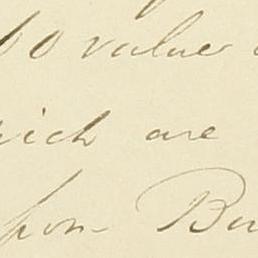 00 value
which are
upon Bu